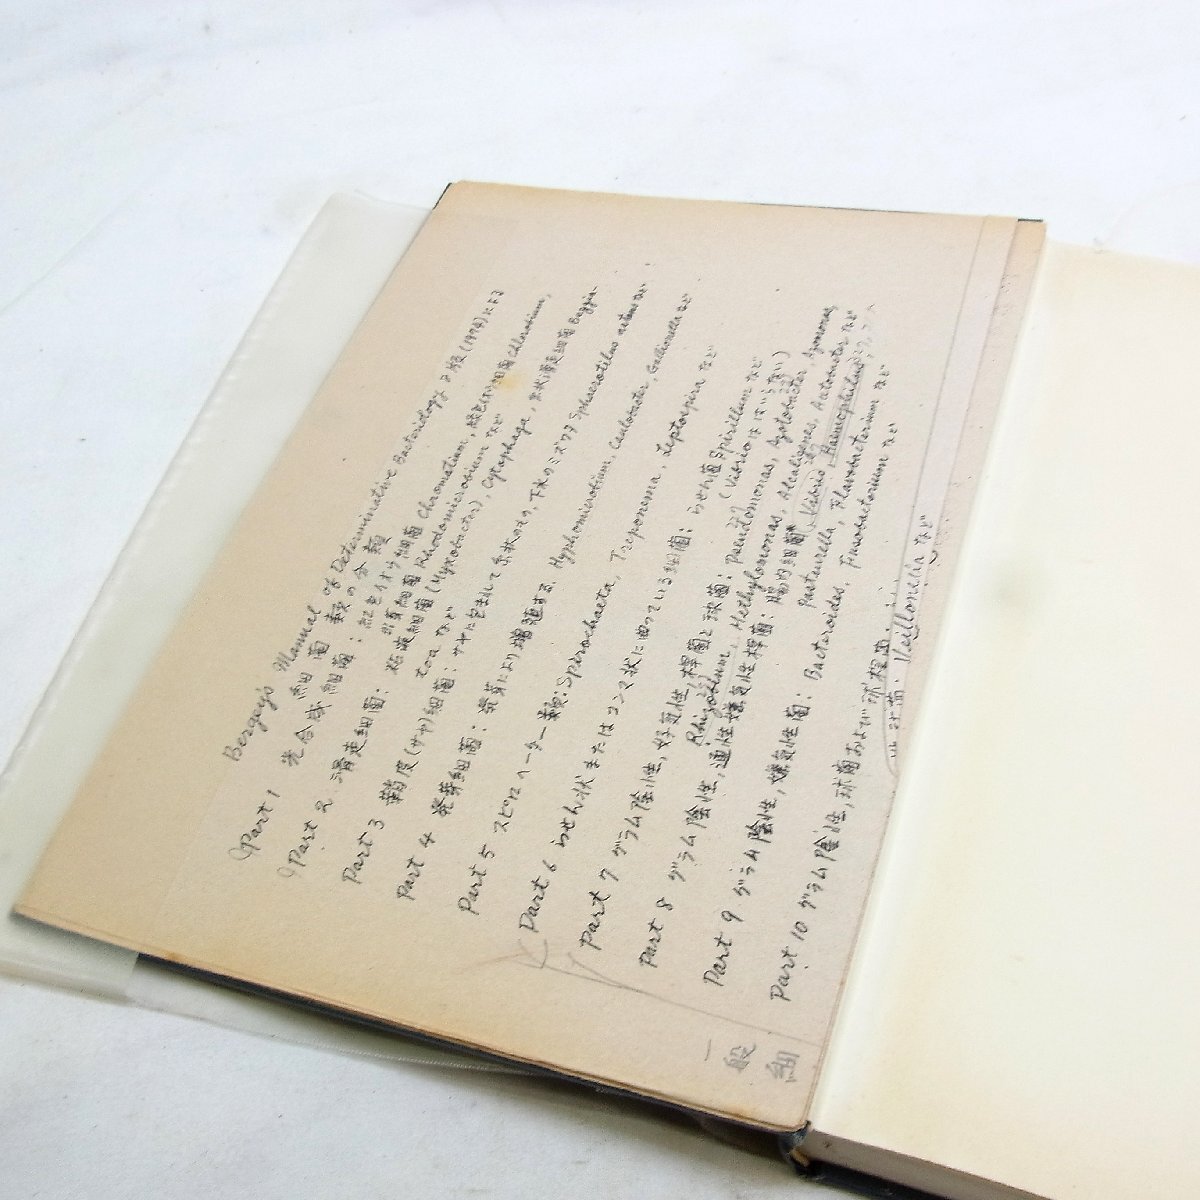 Bergey's Manual of Determinative Bacteriology 8版(1974)による
細菌類の分類
Part 1 光合成細菌: 紅色イオウ細菌 Chromatium, 緑色イオウ細菌 Chlorobium,
紅色細菌 Rhodomicrobium など
Part 2 滑走細菌: 粘液細菌(Myxobacter), Cytophaga, 糸状滑走細菌 Beggia-
toa など
Part 3 鞘(サヤ)細菌: サヤに包まれて糸状のもの, 下水のミズワタ Sphaerotilus natans など
Part 4 発芽細菌: 発芽により増殖する. Hyphomicrobium, Caulobacter, Gallionella など
Part 5 スピロヘーター類: Spirochaeta, Treponema, Leptospira など
Part 6 らせん状またはコンマ状に曲っている細菌: らせん菌 Spirillum など
(Vibrioははいらない)
Part 7 グラム陰性, 好気性桿菌と球菌: Pseudomonas, Azotobacter, Azomonas,
Rhizobium, Methylomonas, Alcaligenes, Acetobacter など
Part 8 グラム陰性, 通性嫌気性桿菌: 腸内細菌, Vibrio, Haemophilus,
Pasteurella, Flavobacterium など
Part 9 グラム陰性, 嫌気性菌: Bacteroides, Fusobacterium など
Part 10 グラム陰性, 球菌および球桿菌
Veillonella など
一般細